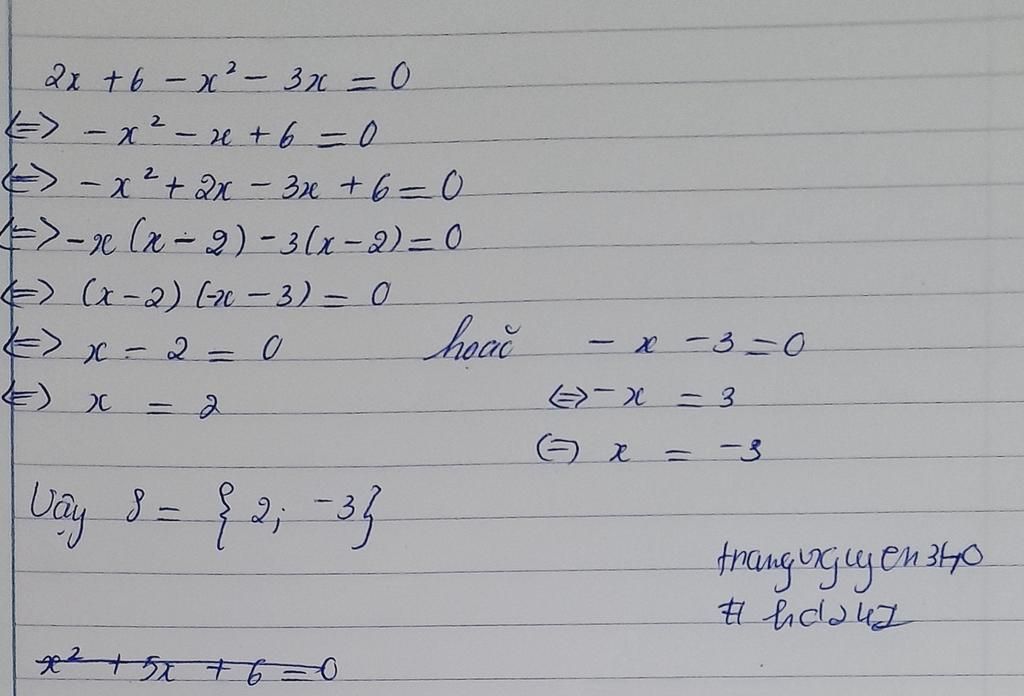 2x + 6 - x² - 3x = 0
<=> - x² - x + 6 = 0
<=> - x² + 2x - 3x + 6 = 0
<=> - x (x - 2) - 3(x - 2) = 0
<=> (x - 2) (-x - 3) = 0
<=> x - 2 = 0 hoặc - x - 3 = 0
<=> x = 2 <=> - x = 3
<=> x = -3
Vậy S = { 2; -3}
# hd247
x² + 5x + 6 = 0